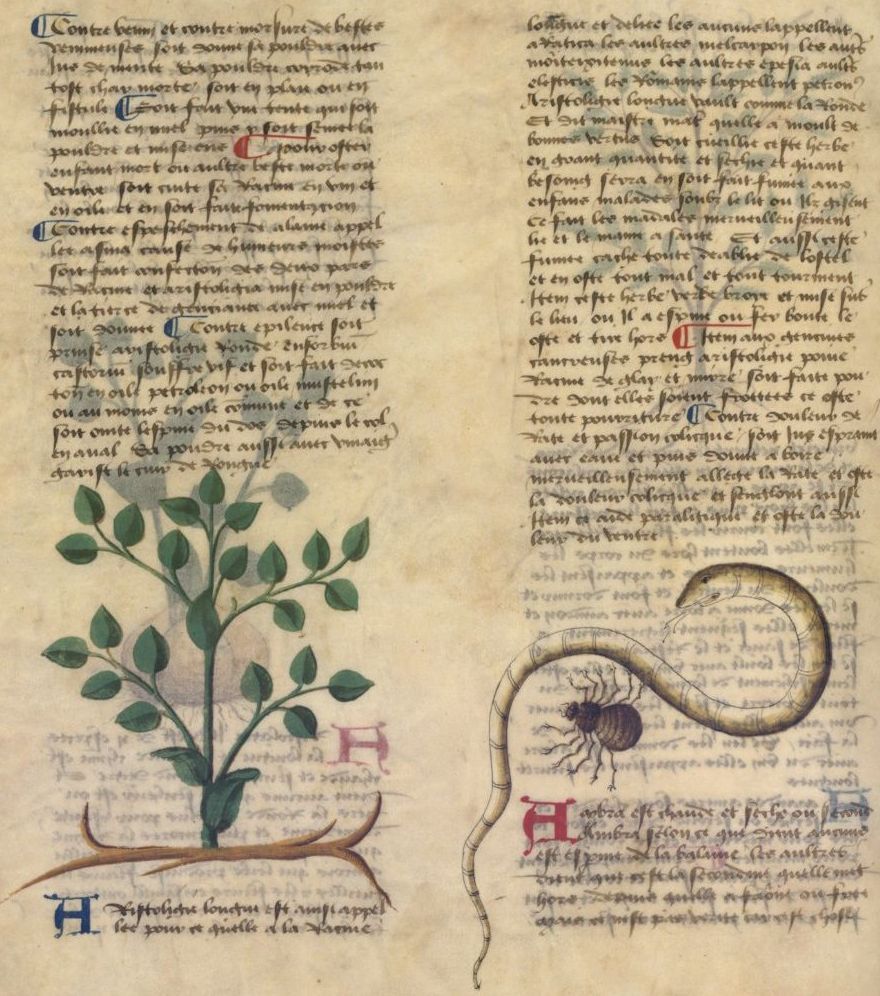 Contre venin et contre morsure de bestes
venimeuses soit donne sa pouldre avec
jus de mente Sa pouldre corrode tan
tost char morte soit en plaie ou en
fistule Soit fait une tente qui soit
moullie en miel puis y soit semee la
pouldre et mise ens pour oster
enfant mort ou aultre beste morte ou
ventre soit cuite sa Racine en vin et
en oile et en soit faite fomentacion
Contre espessement de alaine appel
lee asma cause de humeurs moistes
soit fait confection des deux pars
de Racine et aristologia mise en pouldre
et la tierce de genciane avec miel et
soit donnee Contre epilence soit
prinse aristologie Ronde enforbiu
castoriu souffre vif et soit fait decoc
ton en oile petroleon ou oile mustelin
ou au moins en oile comun et de ce
soit ointe lespine du dos depuis le col
en aval Sa poudre aussi avec vinaigr
garist le cuir de Rongne
Aristologie longue est ainsi appel
lee pour ce quelle a la Racine
longue et deliee les aucuns lappellent
aratica les aultres melcarpon les autres
les aultres epesia aultres
elesticis les Romains lappellent petron
Aristologie longue vault comme la Ronde
Et dit maistre mat quelle a moult de
bonnes vertus Soit cueillie ceste herbe
en grant quantite et sechie et quant
besoing sera en soit fait fumee aux
enfans malades soubz le lit ou ilz gisent
Ce fait les malades merveilleusement
lie et le maine a sante Et aussi ceste
fumee cache toute deablie de lostel
et en oste tout mal et tout tourment
Item ceste herbe verde broye et mise sur
le lieu ou il a espine ou fer boute le
oste et tire hors Item aux gencives
cancreuses preng aristologie poivre
Racine de glay et mirre soit faite pou
dre dont elles soient frottees ce oste
toute pourriture Contre douleur de
Rate et passion colicque soit jus espraint
avec eaue et puis donne a boire
merveilleusement allege la Rate et oste
la douleur colicque et senglout aussi
Item ce aide paralitique et oste la dou
leur du ventre
Ambra est chaude et seche ou second
Ambra selon ce que dient aucuns
est esperme de la balaine les aultres
dient que cest la secondine quelle met
hors depuis quelle a faonne ou fece
mais ce nest pas verite car cest chose